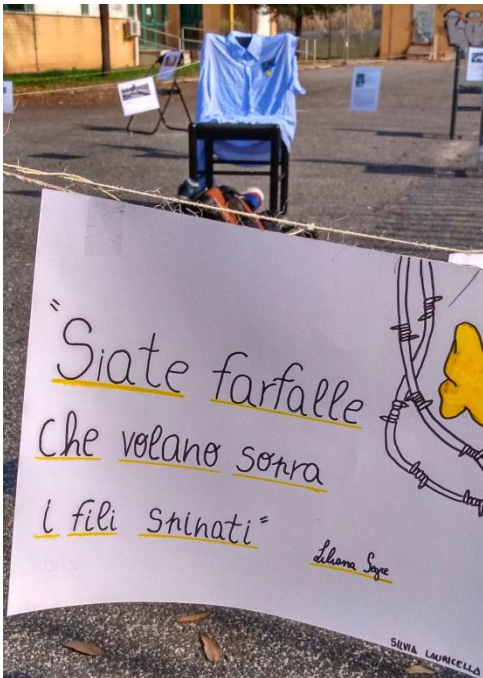 "Siate farfalle
che volano sopra
i fili spinati"
Liliana Segre
SILVIA LAURICELLA